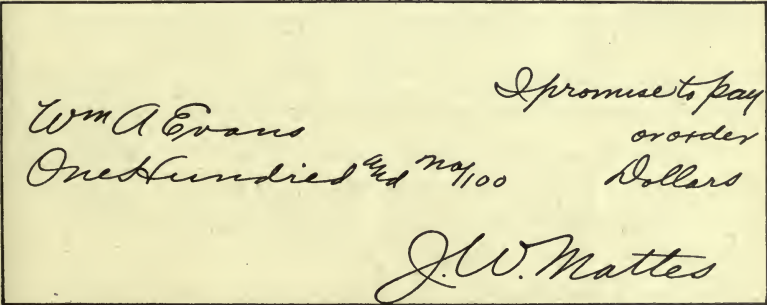 I promise to pay
Wm A Evans or order
One Hundred and no/100 Dollars
J. W. Mattes